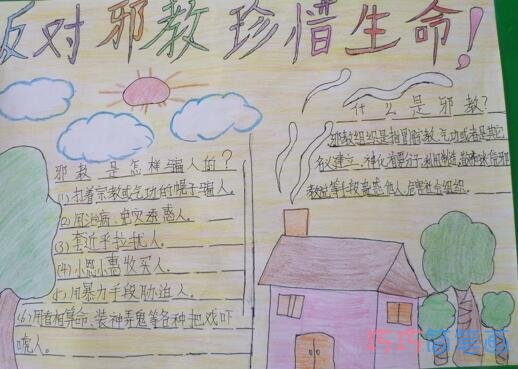 反对邪教珍惜生命！
邪教是怎样骗人的？
(1)打着宗教或气功的幌子骗人。
(2)用治病、免灾诱惑人。
(3)套近乎拉拢人。
(4)小恩小惠收买人。
用暴力手段胁迫人。
(6)用看相算命、装神弄鬼等各种把戏吓
唬人。
什么是邪教？
邪教组织是指冒用宗教、气功或者是其它
名义建立，神化首要分子，利用制造、散布迷信邪
说等手段蛊惑他人，危害社会组织。
巧巧简笔画